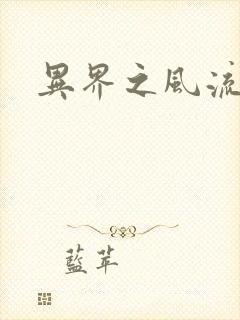 異界之風流
藍苹